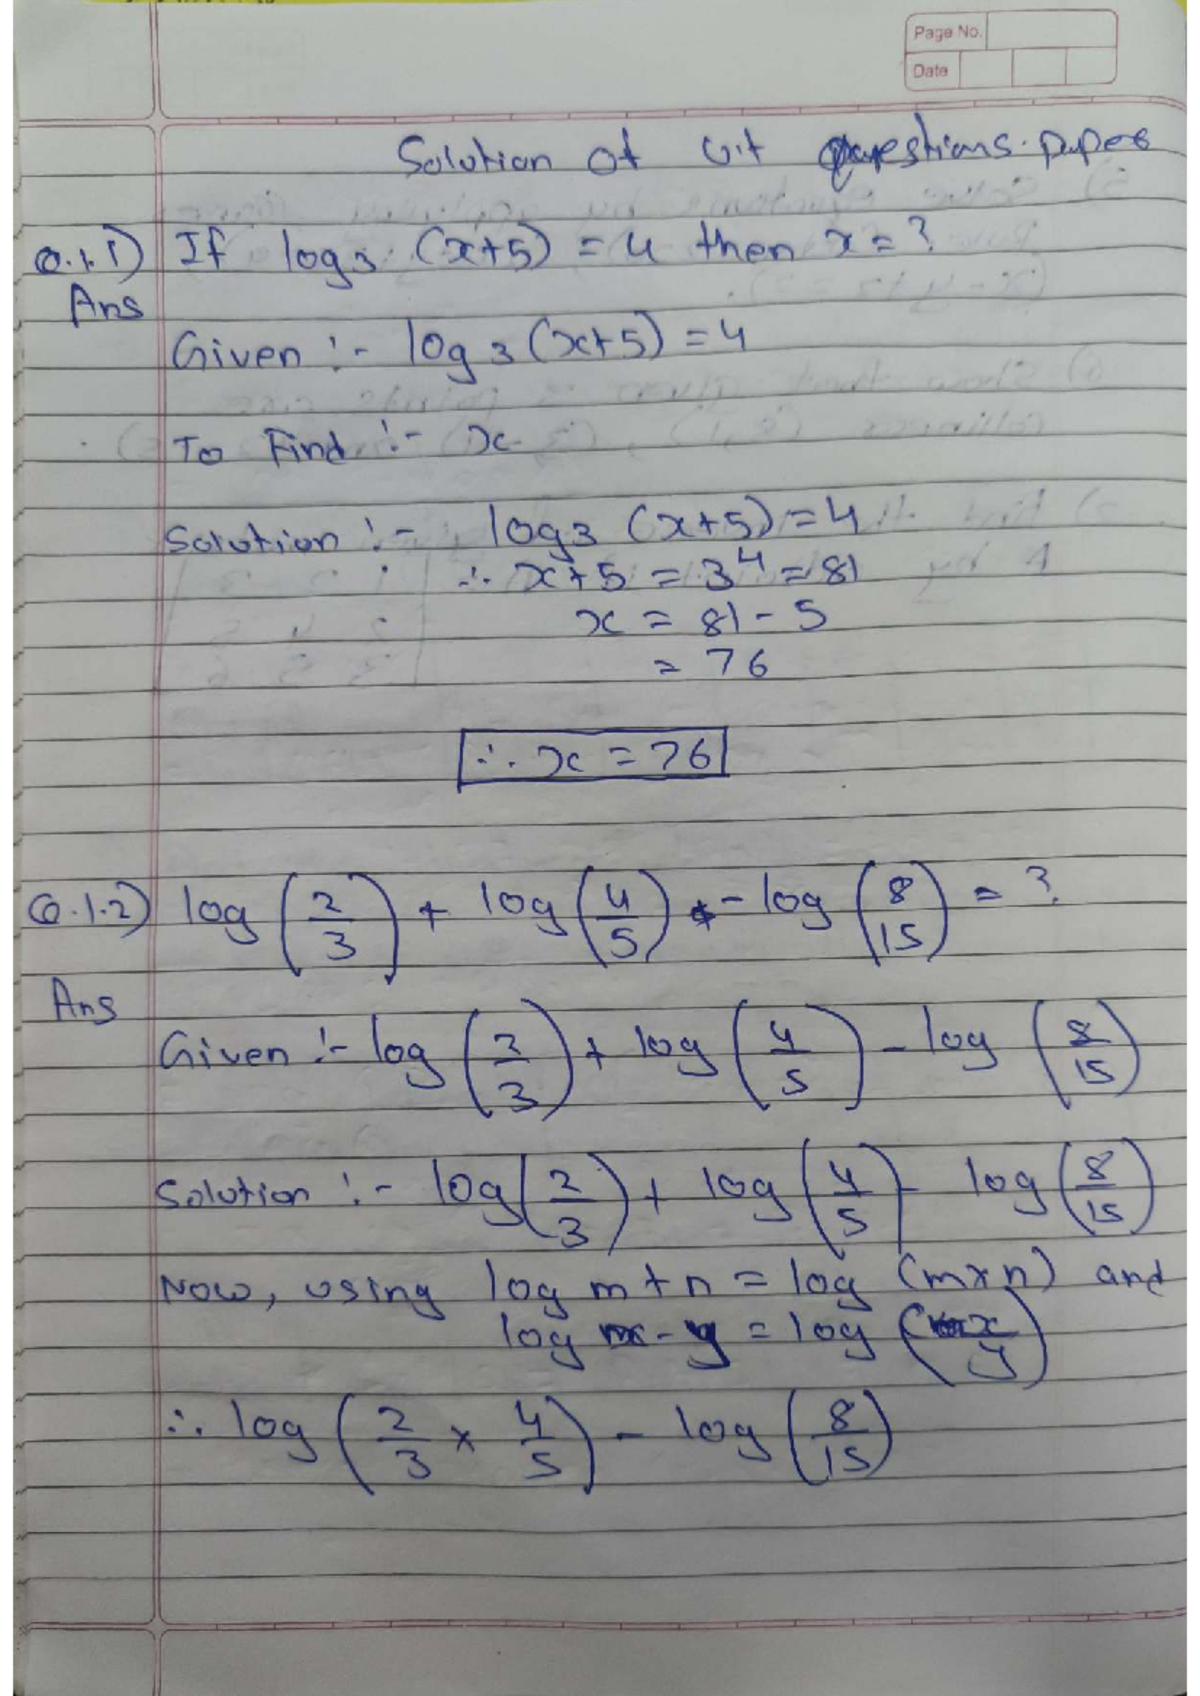 Page No.
Date
Solution of U.t questions. papers
Q.1.1) If log3 (x+5) = 4 then x = ?
Ans
Given :- log3 (x+5) = 4
To Find :- x
Solution :- log3 (x+5) = 4
∴ x+5 = 3⁴ = 81
x = 81 - 5
= 76
∴ x = 76
Q.1.2) log (2/3) + log (4/5) - log (8/15) = ?
Ans
Given :- log (2/3) + log (4/5) - log (8/15)
Solution :- log (2/3) + log (4/5) - log (8/15)
Now, using log m + n = log (m×n) and
log x - y = log (x/y)
∴ log (2/3 × 4/5) - log (8/15)